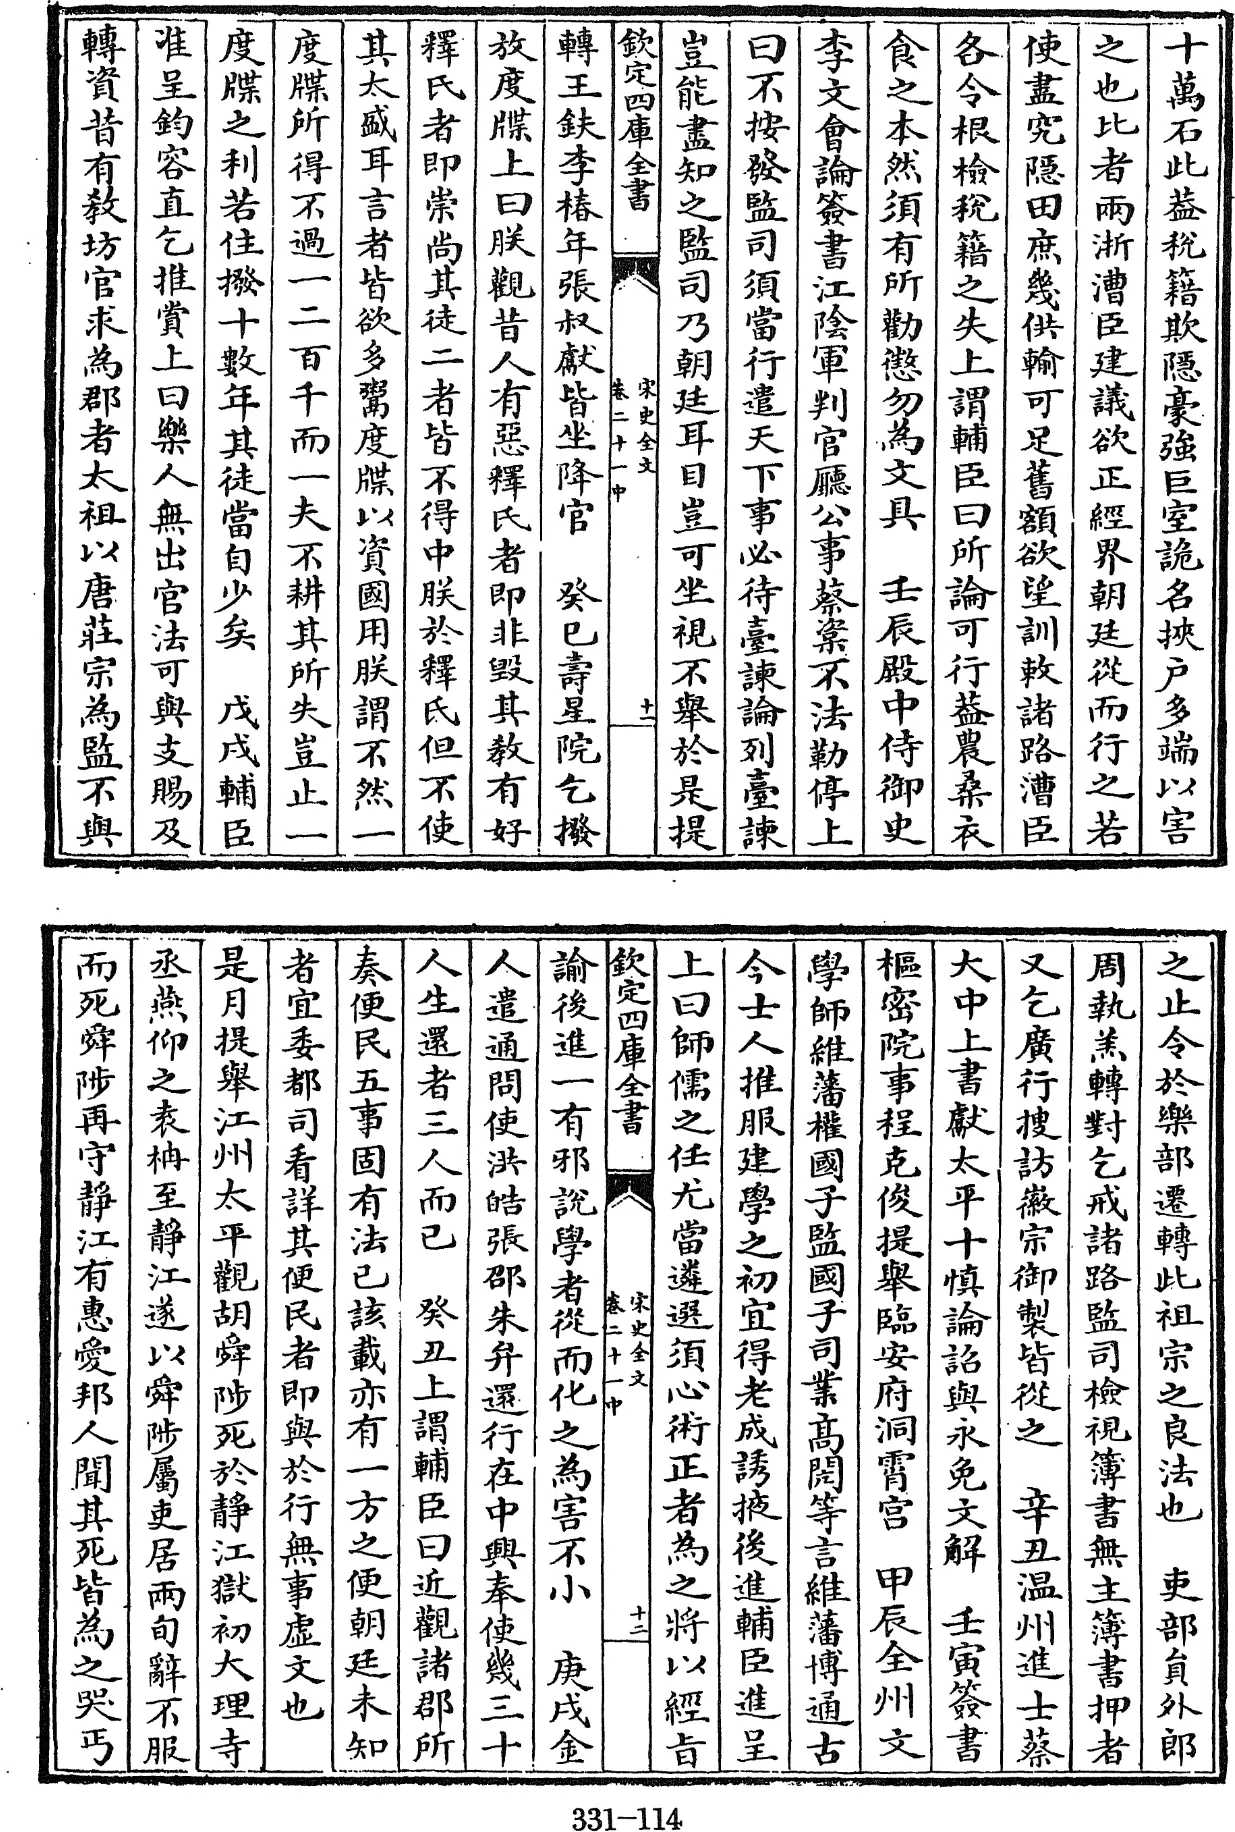 十萬石此葢稅籍欺隱豪強巨室詭名挾户多端以害
之也比者兩浙漕臣建議欲正經界朝廷從而行之若
使盡究隱田庶幾供輸可足舊額欲望訓敕諸路漕臣
各令根檢稅籍之失上謂輔臣曰所論可行葢農桑衣
食之本然須有所勸懲勿為文具　壬辰殿中侍御史
李文會論簽書江陰軍判官廳公事蔡楽不法勒停上
曰不按發監司須當行遣天下事必待臺諫論列臺諫
豈能盡知之監司乃朝廷耳目豈可坐視不舉於是提
欽定四庫全書
宋史全文
卷二十一中
十一
轉王鈇李椿年張叔獻皆坐降官　癸巳壽星院乞撥
放度牒上曰朕觀昔人有惡釋氏者即非毀其教有好
釋氏者即崇尚其徒二者皆不得中朕於釋氏但不使
其太盛耳言者皆欲多鬻度牒以資國用朕謂不然一
度牒所得不過一二百千而一夫不耕其所失豈止一
度牒之利若住撥十數年其徒當自少矣　戊戌輔臣
准呈鈞容直乞推賞上曰樂人無出官法可與支賜及
轉資昔有教坊官求為郡者太祖以唐莊宗為監不與
之止令於樂部遷轉此祖宗之良法也　吏部員外郎
周執羔轉對乞戒諸路監司檢視簿書無主簿書押者
又乞廣行搜訪徽宗御製皆從之　辛丑温州進士蔡
大中上書獻太平十慎論詔與永免文解　壬寅簽書
樞密院事程克俊提舉臨安府洞霄宮　甲辰全州文
學師維藩權國子監國子司業髙閌等言維藩博通古
今士人推服建學之初宜得老成誘掖後進輔臣進呈
上曰師儒之任尤當遴選須心術正者為之將以經旨
欽定四庫全書
宋史全文
卷二十一中
十二
諭後進一有邪說學者從而化之為害不小　庚戌金
人遣通問使洪皓張邵朱弁還行在中興奉使幾三十
人生還者三人而已　癸丑上謂輔臣曰近觀諸郡所
奏便民五事固有法已該載亦有一方之便朝廷未知
者宜委都司看詳其便民者即與於行無事虛文也
是月提舉江州太平觀胡舜陟死於靜江獄初大理寺
丞燕仰之袁柟至靜江遂以舜陟屬吏居兩旬辭不服
而死舜陟再守靜江有惠愛邦人聞其死皆為之哭丐
331-114